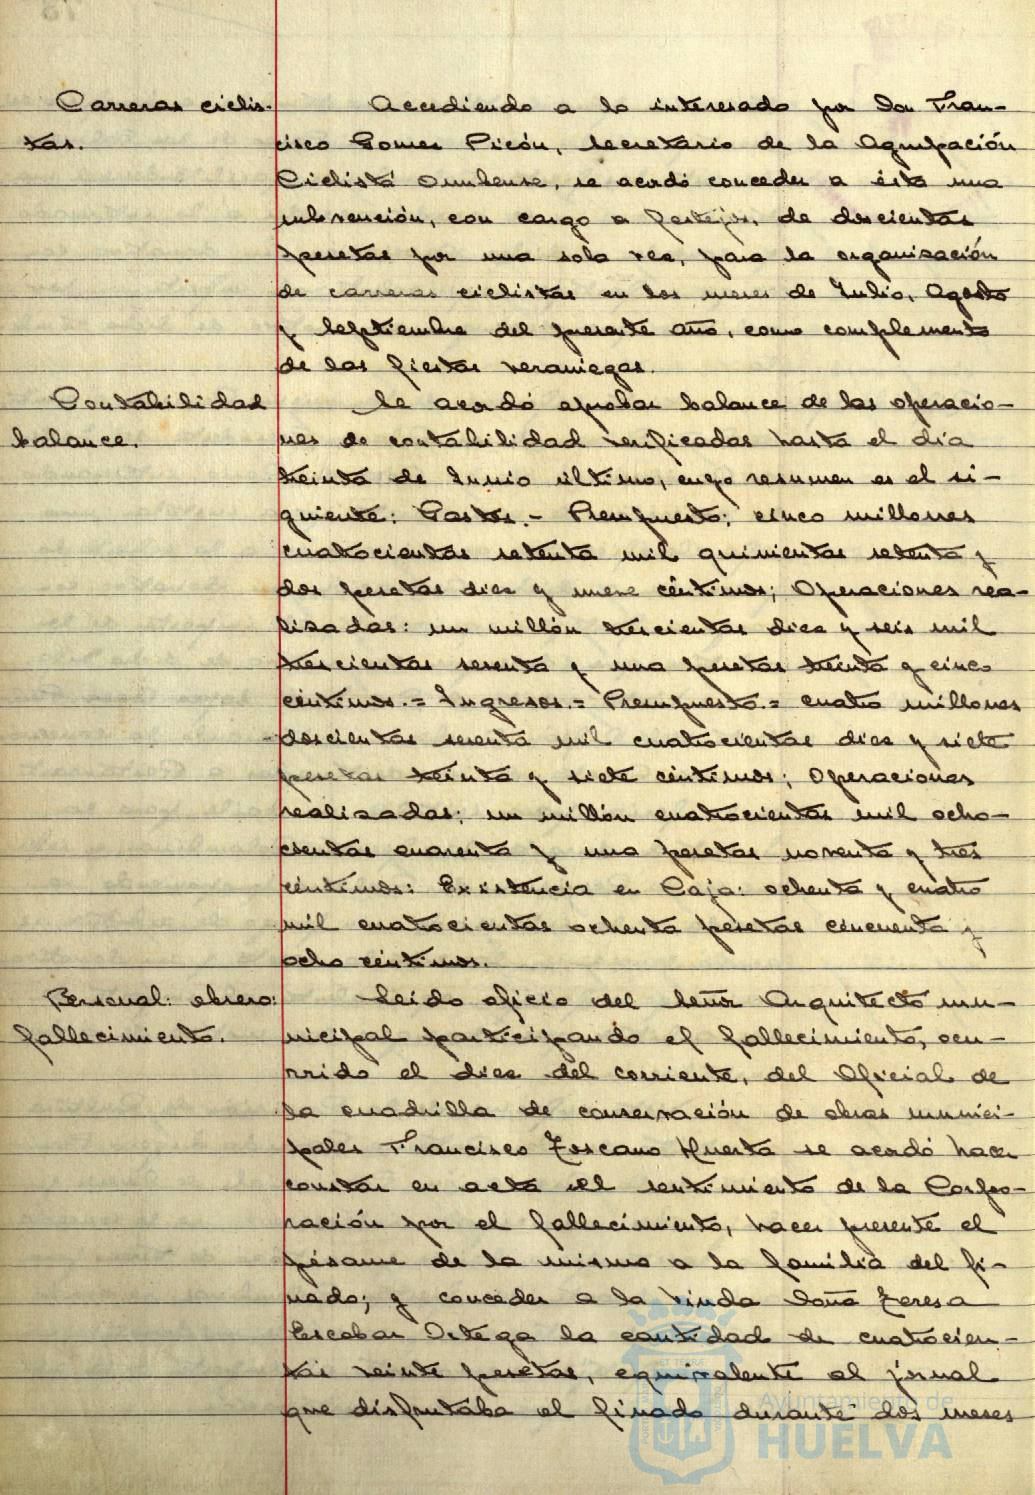 Carreras ciclis-
tas.
Accediendo a lo interesado por Don Fran-
cisco Gomez Picón, Secretario de la Agrupación
Ciclista Onubense, se acordó conceder a ésta una
subvención, con cargo a festejos, de doscientas
pesetas por una sola vez, para la organización
de carreras ciclistas en los meses de Julio, Agosto
y Septiembre del presente año, como complemento
de las fiestas veraniegas.
Contabilidad
balance.
Se acordó aprobar balance de las operacio-
nes de contabilidad verificadas hasta el día
treinta de Junio último, cuyo resumen es el si-
guiente: Gastos.- Presupuesto; cinco millones
cuatrocientas setenta mil quinientas setenta y
dos pesetas diez y nueve céntimos; Operaciones rea-
lizadas: un millón trescientas diez y seis mil
trescientas sesenta y una pesetas treinta y cinco
céntimos.= Ingresos.= Presupuesto.= cuatro millones
doscientas sesenta mil cuatrocientas diez y siete
pesetas treinta y siete céntimos; Operaciones
realizadas; un millón cuatrocientas mil ocho-
cientas cuarenta y una pesetas noventa y tres
céntimos: Existencia en Caja: ochenta y cuatro
mil cuatrocientas ochenta pesetas cincuenta y
ocho céntimos.
Personal: obrero:
fallecimiento.
Leido oficio del Señor Arquitecto mu-
nicipal participando el fallecimiento, ocu-
rrido el diez del corriente, del Oficial de
la cuadrilla de conservación de obras munici-
pales Francisco Toscano Huerta se acordó hacer
constar en acta el sentimiento de la Corpo-
ración por el fallecimiento, hacer presente el
pésame de la misma a la familia del fi-
nado; y conceder a la viuda Doña Teresa
Escobar Ortega la cantidad de cuatrocien-
tas veinte pesetas, equivalente al jornal
que disfrutaba el finado durante dos meses
Ayuntamiento de
HUELVA